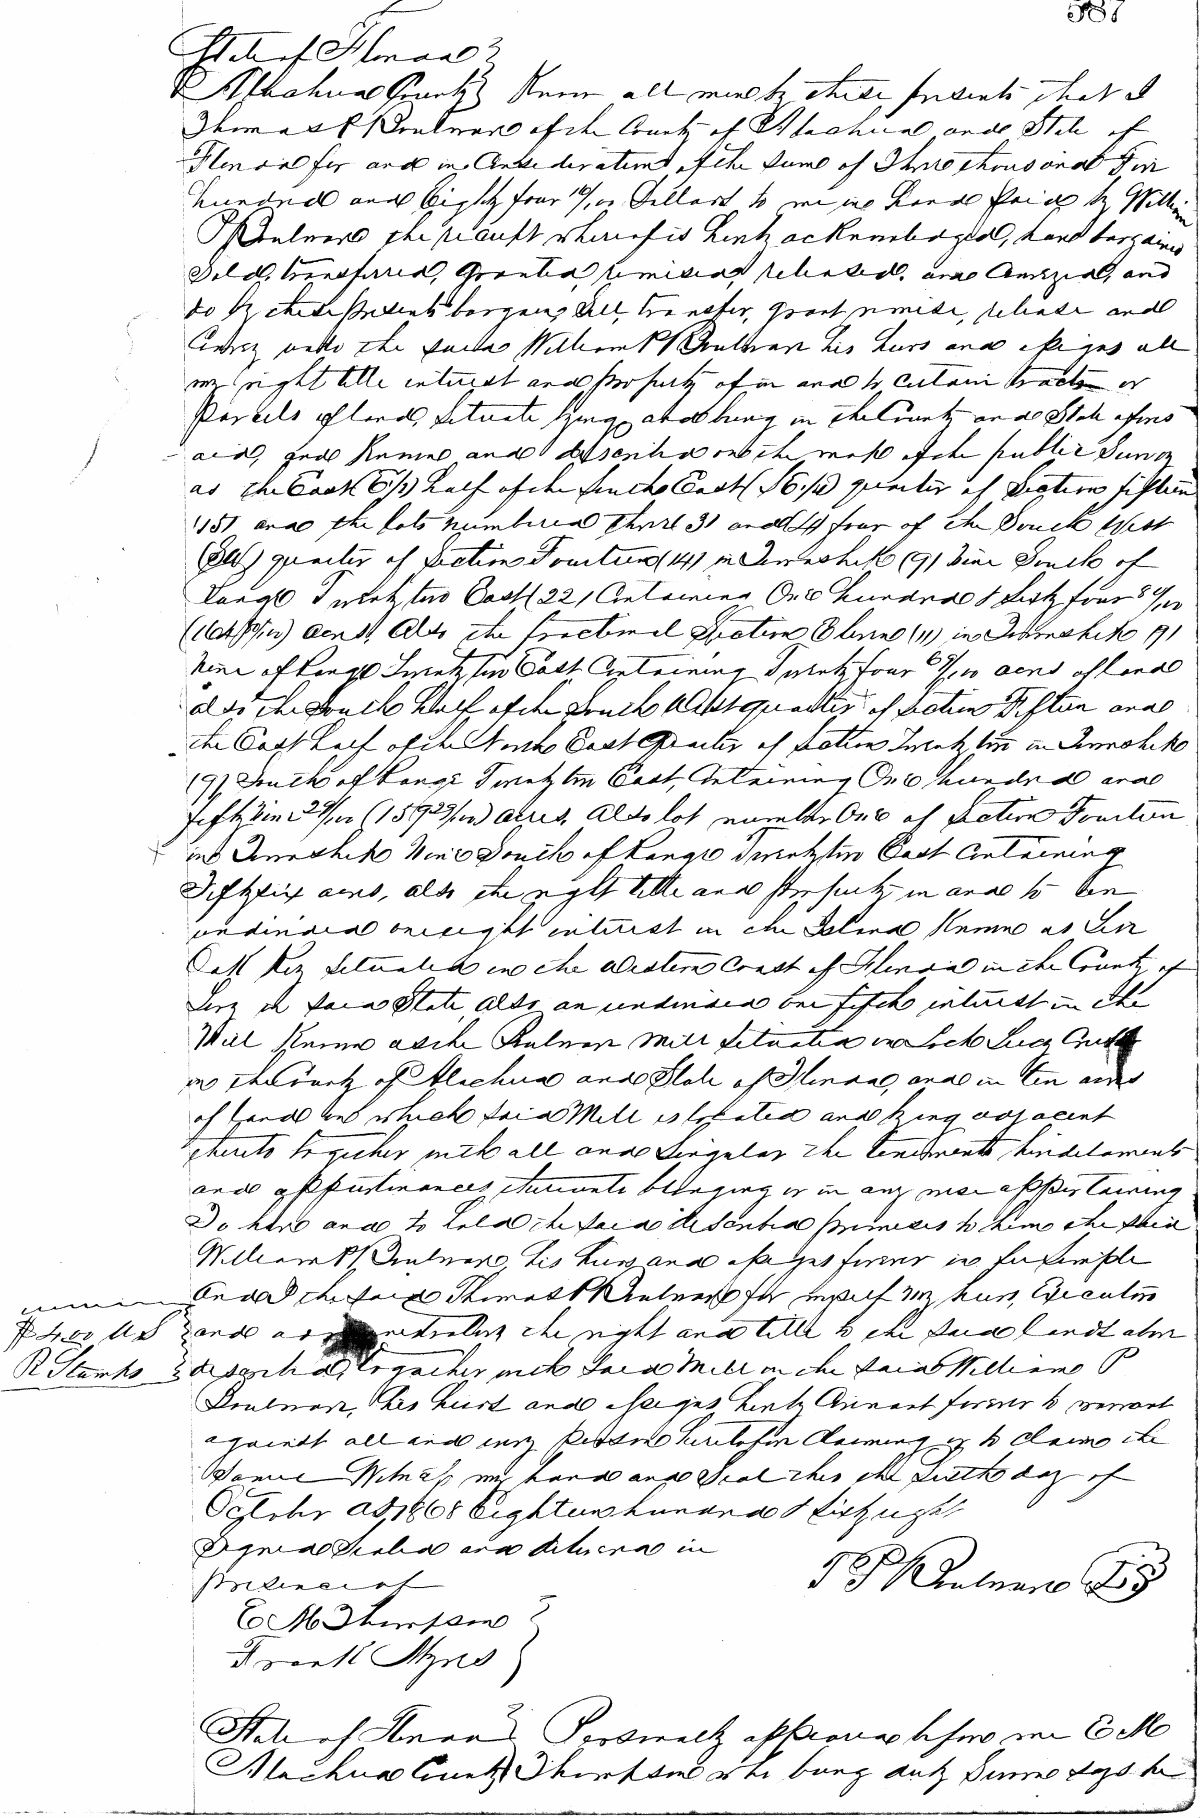 587
State of Florida
Alachua County Know all men by these presents that I
Thomas P Poulnare of the County of Alachua and State of
Florida for and in Consideration of the sum of Three thousand Five
hundred and Eighty four Dollars to me in hand paid by William
P Poulnare the receipt whereof is hereby acknowledged, have bargained
Sold, transferred, granted, remised, released, and Conveyed, and
do by these presents bargain, sell, transfer, grant remise, release and
Convey unto the said William P Poulnare his heirs and assigns all
my right title interest and property of in and to certain tracts or
Parcels of land, Situate lying and being in the County and State afores
aid, and Known and described on the map of the public Survey
as the East (E½) half of the South East (SE¼) quarter of Section fifteen
(15) and the lots numbered three 3) and (4) four of the South West
(SW) quarter of Section Fourteen (14) in Township (9) Nine South of
Range Twenty two East (22) Containing One hundred & Sixty four
acres, Also the fractional Section Eleven (11) in Township (9)
Nine of Range Twenty two East Containing Twenty four acres of land
also the South half of the South West quarter of Section Fifteen and
the East half of the North East Quarter of Section Twenty two in Township
(9) South of Range Twenty two East, Containing One hundred and
fifty Nine 29/100 (159 29/100) acres, Also lot number One of Section Fourteen
in Township Nine South of Range Twenty two East Containing
Fifty six acres, also the right title and property in and to an
undivided one eight interest in the Island Known as
Key Situated on the Western Coast of Florida in the County of
Levy in said State, also an undivided one fifth interest in the
Mill Known as the Poulnare Mill Situated on
in the County of Alachua and State of Florida, and in ten acres
of land on which said Mill is located and lying adjacent
thereto together with all and Singular the tenements, hereditaments
and appurtenances thereunto belonging or in any wise appertaining
To have and to hold the said described premises to him the said
William P Poulnare, his heirs and assigns forever in fee simple
And I the said Thomas P Poulnare for myself my heirs, Executors
$4.00 U S and the right and title to the said lands above
R Stamps described, together with said Mill in the said William P
Poulnare, his heirs and assigns hereby Covenant forever to warrant
against all and every person heretofore Claiming or to claim the
Same Witness my hand and Seal this the Sixth day of
October AD 1868 Eighteen hundred & sixty eight
Signed Sealed and delivered in
presence of
T P Poulnare LS
E M Thompson
Frank Myres
State of Florida Personally appeared before me E M
Alachua County Thompson who being duly Sworn says he